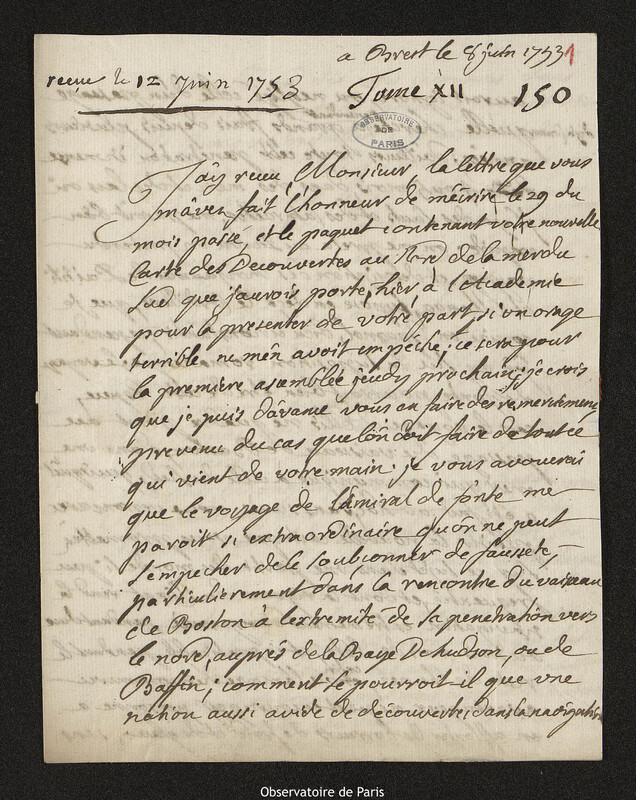 a Brest le 8 juin 1753 1
receue le 12 Juin 1753
Tome XII 150
OBSERVATOIRE
DE
PARIS
J'ay receu, Monsieur, la lettre que vous
m'avez fait l'honneur de m'écrire le 29 du
mois passé, et le paquet contenant votre nouvelle
Carte des Decouvertes au Nord de la mer du
Sud que j'aurois porté, hier à l'Academie
pour la presenter de votre part, si un orage
terrible ne m'en avoit empéché; ce sera pour
la première asemblée jeudy prochain; je crois
que je puis d'avance vous en faire des remerciemens
prevenu du cas que l'on doit faire de tout ce
qui vient de votre main. je vous avouerai
que le voyage de l'amiral de fonte me
paroit si extraordinaire qu'on ne peut
s'empecher de le soubconner de fausseté,
particulièrement dans la rencontre du vaiseau
de Boston à l'extremité de sa penetration vers
le nord, auprés de la Baye De hudson, ou de
Baffin; comment se pourroit il que une
nation aussi avide de découverte, dans la navigation
Observatoire de Paris